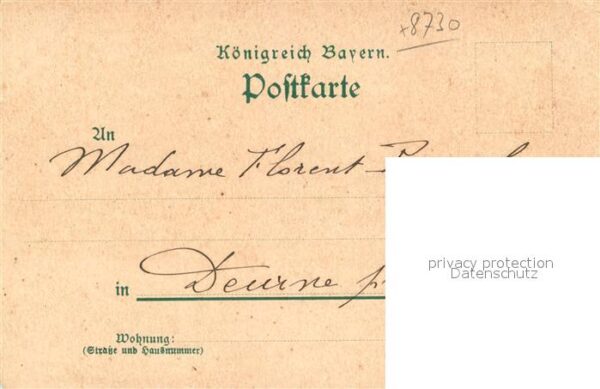 +8730
Königreich Bayern.
Postkarte
An
Madame Florent
privacy protection
Datenschutz
in Deurne
Wohnung:
(Straße und Hausnummer)